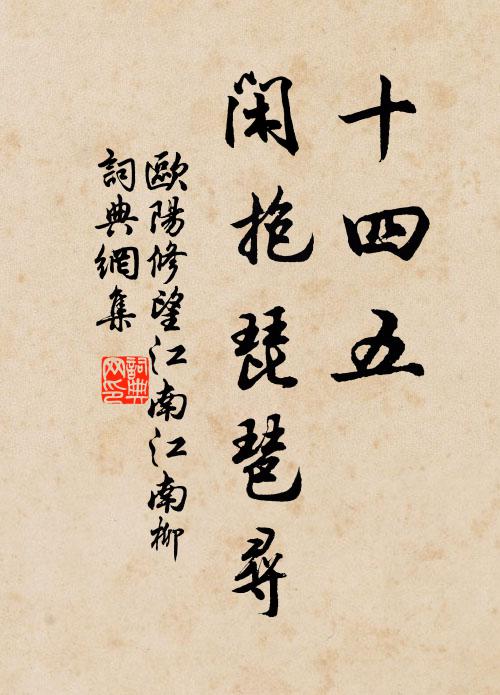 十四五
閑抱琵琶尋
歐陽修望江南江南柳
詞典網集
詞典網印